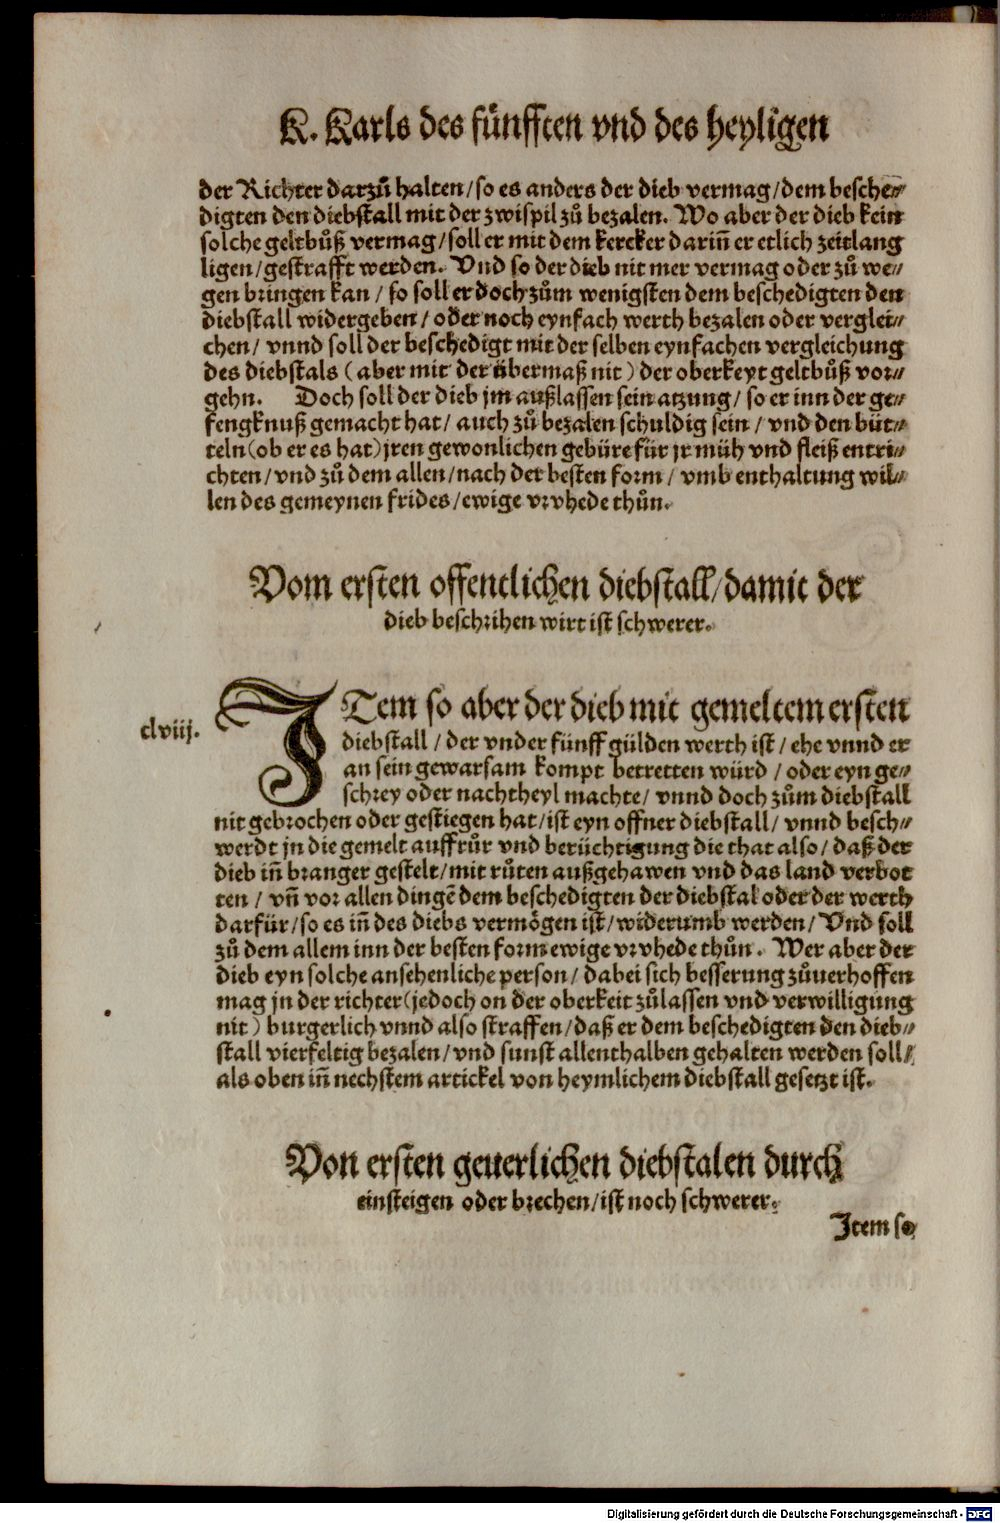 K. Karls des fünfften vnd des heyligen
der Richter darzů halten/so es anders der dieb vermag/dem besche⸗
digten den diebstall mit der zwispil zů bezalen. Wo aber der dieb kein
solche geltbůß vermag/soll er mit dem kercker dariñ er etlich zeitlang
ligen/gestrafft werden. Vnd so der dieb nit mer vermag oder zů we⸗
gen bringen kan/so soll er doch zům wenigsten dem beschedigten den
diebstall widergeben/oder noch eynfach werth bezalen oder verglei⸗
chen/vnnd soll der beschedigt mit der selben eynfachen vergleichung
des diebstals (aber mit der übermaß nit) der oberkeyt geltbůß vor⸗
gehn. Doch soll der dieb jm außlassen sein atzung/so er inn der ge⸗
fengknuß gemacht hat/auch zů bezalen schuldig sein/vnd den büt⸗
teln (ob er es hat) jren gewonlichen gebüre für jr müh vnd fleiß entri⸗
chten/vnd zů dem allen/nach der besten form/vmb enthaltung wil⸗
len des gemeynen frides/ewige vrvhede thůn.
Vom ersten offentlichen diebstall/damit der
dieb beschrihen wirt ist schwerer.
clviij.
ITem so aber der dieb mit gemeltem ersten
diebstall/der vnder fünff gülden werth ist/ehe vnnd er
an sein gewarsam kompt betretten würd/oder eyn ge⸗
schrey oder nachtheyl machte/vnnd doch zům diebstall
nit gebrochen oder gestiegen hat/ist eyn offner diebstall/vnnd besch⸗
werdt jn die gemelt auffrůr vnd berüchtigung die that also/daß der
dieb iñ branger gestelt/mit růten außgehawen vnd das land verbot
ten/vñ vor allen dingē dem beschedigten der diebstal oder der werth
darfür/so es iñ des diebs vermögen ist/widerumb werden/Vnd soll
zů dem allem inn der besten form ewige vrvhede thůn. Wer aber der
dieb eyn solche ansehenliche person/dabei sich besserung zůuerhoffen
mag jn der richter (jedoch on der oberkeit zůlassen vnd verwilligung
nit) burgerlich vnnd also straffen/daß er dem beschedigten den dieb⸗
stall vierfeltig bezalen/vnd sunst allenthalben gehalten werden soll/
als oben iñ nechstem artickel von heymlichem diebstall gesetzt ist.
Von ersten geuerlichen diebstalen durch
einsteigen oder brechen/ist noch schwerer.
Item so
Digitalisierung gefördert durch die Deutsche Forschungsgemeinschaft - DFG